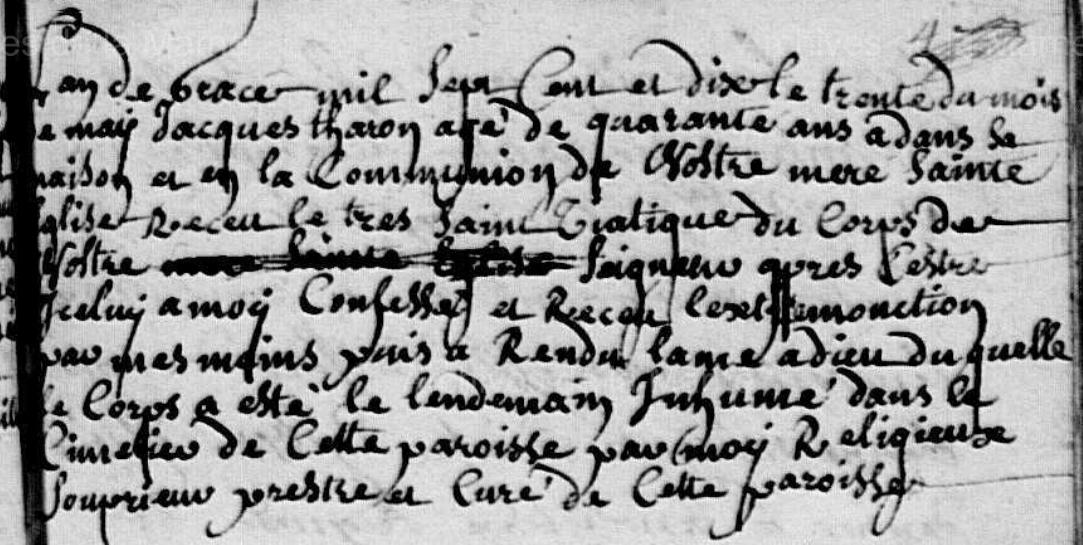 Lan de grace mil sept Cent et dix le trente du mois
de maij Jacques tharon agé de quarante ans a dans sa
maison et en la Communion de Nostre mere Sainte
Eglise Receu le tres Saint Viatique du Corps de
Nostre mere Sainte Eglise Seigneur apres sestre
Iceluij a moij Confessé et Receu lextremonction
par mes mains puis a Rendu lame a dieu du quelle
le Corps a esté le lendemain Inhumé dans le
Cimetier de Cette paroisse par moij Religieux
Souprieur prestre et Curé de Cette paroisse